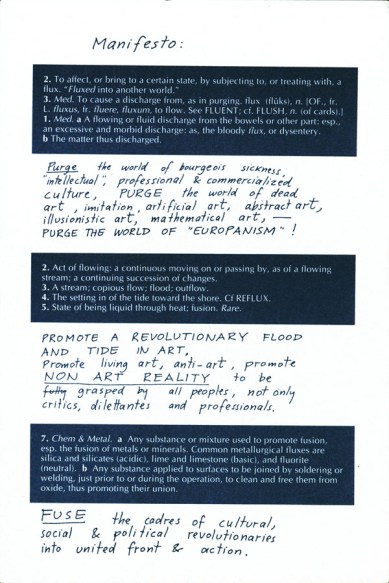 Manifesto:
2. To affect, or bring to a certain state, by subjecting to, or treating with, a
flux. "Fluxed into another world."
3. Med. To cause a discharge from, as in purging. flux (flŭks), n. [OF., fr.
L. fluxus, fr. fluere, fluxum, to flow. See FLUENT; cf. FLUSH, n. (of cards).]
1. Med. a A flowing or fluid discharge from the bowels or other part: esp.,
an excessive and morbid discharge: as, the bloody flux, or dysentery.
b The matter thus discharged.
Purge the world of bourgeois sickness,
"intellectual", professional & commercialized
culture, PURGE the world of dead
art, imitation, artificial art, abstract art,
illusionistic art, mathematical art, —
PURGE THE WORLD OF "EUROPANISM" !
2. Act of flowing: a continuous moving on or passing by, as of a flowing
stream; a continuing succession of changes.
3. A stream; copious flow; flood; outflow.
4. The setting in of the tide toward the shore. Cf REFLUX.
5. State of being liquid through heat; fusion. Rare.
PROMOTE A REVOLUTIONARY FLOOD
AND TIDE IN ART,
Promote living art, anti-art, promote
NON ART REALITY to be
fully grasped by all peoples, not only
critics, dilettantes and professionals.
7. Chem & Metal. a Any substance or mixture used to promote fusion,
esp. the fusion of metals or minerals. Common metallurgical fluxes are
silica and silicates (acidic), lime and limestone (basic), and fluorite
(neutral). b Any substance applied to surfaces to be joined by soldering or
welding, just prior to or during the operation, to clean and free them from
oxide, thus promoting their union.
FUSE the cadres of cultural,
social & political revolutionaries
into united front & action.